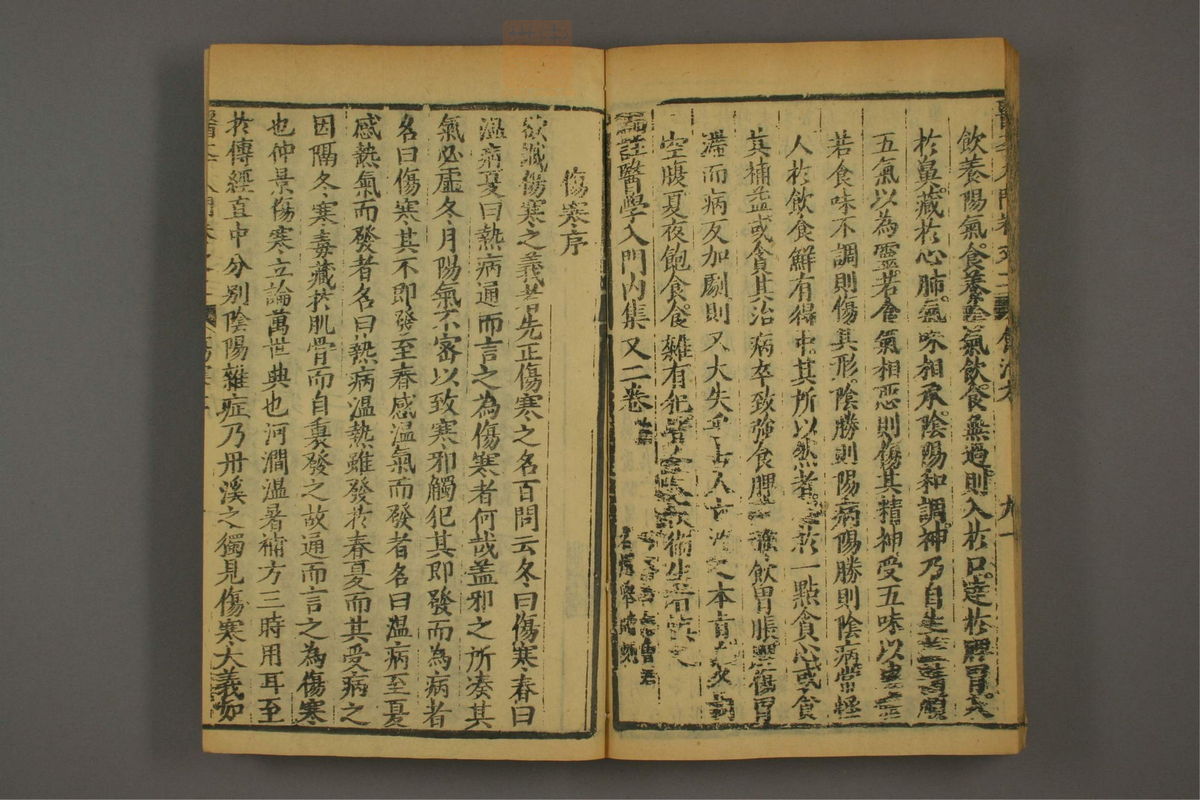 飲養陽氣食養陰氣飲食無過則入於口達於脾胃
於鼻藏於心肺氣味相承陰陽和調神乃自生
五氣以為靈若食氣相惡則傷其精神受五味以
若食味不調則傷其形陰勝則陽病陽勝則陰病常怪
人於飲食鮮有得中其所以然者於一點貪心或貪
其補益或貪其治病卒致強食脾飲胃脹傷胃
滯而病反加劇則又大失古人本
空腹夏夜飽食食雜有犯衛生者
編註醫學入門內集又二卷
傷寒序
欲識傷寒之義者先正傷寒之名百問云冬曰傷寒春曰
溫病夏曰熱病通而言之為傷寒者何哉蓋邪之所湊其
氣必虛冬月陽氣不審以致寒邪觸犯其即發而為病者
名曰傷寒其不即發至春感溫氣而發者名曰溫病至夏
感熱氣而發者名曰熱病溫熱雖發於春夏而其受病之
因隔冬寒毒藏於肌骨而自裏發之故通而言之為傷寒
也仲景傷寒立論萬世典也河澗溫暑補方三時用耳至
於傳經直中分別陰陽雜症乃丹溪之獨見傷寒大義如